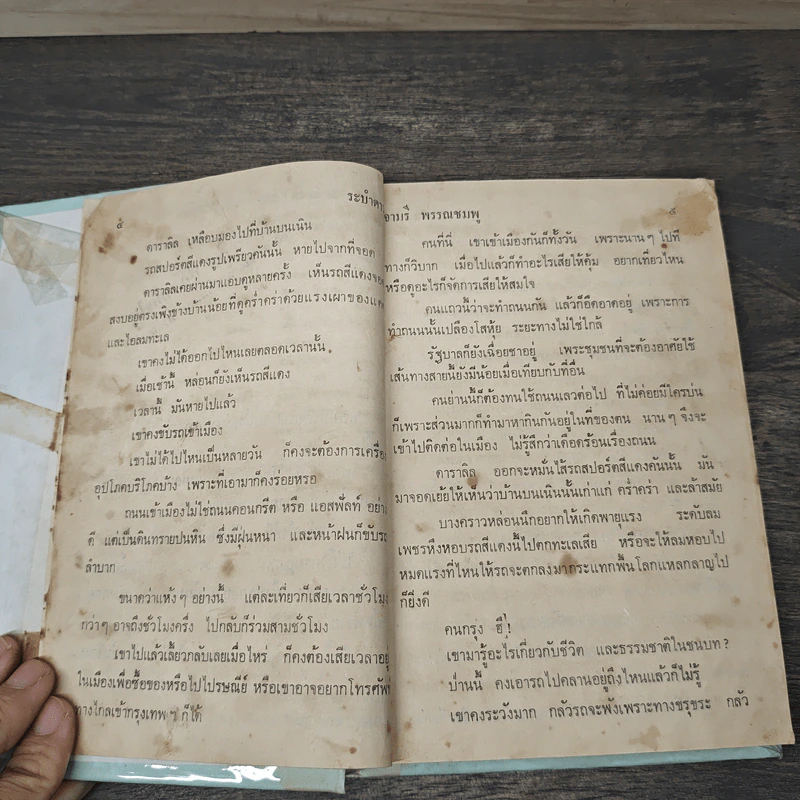 ๔ ระบำดาว
ดาราลิล เหลือบมองไปที่บ้านบนเนิน
รถสปอร์ตสีแดงรูปเพรียวคันนั้น หายไปจากที่จอด
ดาราลิลเคยผ่านมาแอบดูหลายครั้ง เห็นรถสีแดงจอด
สงบอยู่ตรงเพิงข้างบ้านน้อยที่ดูคร่ำคร่าด้วยแรงเผาของแดด
และไอลมทะเล
เขาคงไม่ได้ออกไปไหนเลยตลอดเวลานั้น
เมื่อเช้านี้ หล่อนก็ยังเห็นรถสีแดง
เวลานี้ มันหายไปแล้ว
เขาคงขับรถเข้าเมือง
เขาไม่ได้ไปไหนเป็นหลายวัน ก็คงจะต้องการเครื่อง
อุปโภคบริโภคบ้าง เพราะที่เอามาก็คงร่อยหรอ
ถนนเข้าเมืองไม่ใช่ถนนคอนกรีต หรือ แอสฟัลท์ อย่าง
ดี แต่เป็นดินทรายปนหิน ซึ่งมีฝุ่นหนา และหน้าฝนก็ขับรถ
ลำบาก
ขนาดว่าแห้ง ๆ อย่างนี้ แต่ละเที่ยวก็เสียเวลาชั่วโมง
กว่า ๆ อาจถึงชั่วโมงครึ่ง ไปกลับก็ร่วมสามชั่วโมง
เขาไปแล้วเลี้ยวกลับเลยเมื่อไหร่ ก็คงต้องเสียเวลาอยู่
ในเมืองเพื่อซื้อของหรือไปไปรษณีย์ หรือเขาอาจอยากโทรศัพท์
ทางไกลเข้ากรุงเทพ ฯ ก็ได้
จามรี พรรณชมพู ๕
คนที่นี่ เขาเข้าเมืองกันก็ทั้งวัน เพราะนาน ๆ ไปที
ทางก็วิบาก เมื่อไปแล้วก็ทำอะไรเสียให้คุ้ม อยากเที่ยวไหน
หรือดูอะไรก็จัดการเสียให้สมใจ
คนแถวนี้ว่าจะทำถนนกัน แล้วก็อืดอาดอยู่ เพราะการ
ทำถนนนั้นเปลืองโสหุ้ย ระยะทางไม่ใช่ใกล้
รัฐบาลก็ยังเฉื่อยชาอยู่ เพราะชุมชนที่จะต้องอาศัยใช้
เส้นทางสายนี้ยังมีน้อยเมื่อเทียบกับที่อื่น
คนย่านนี้ก็ต้องทนใช้ถนนเลวต่อไป ที่ไม่ค่อยมีใครบ่น
ก็เพราะส่วนมากก็ทำมาหากินกันอยู่ในที่ของตน นาน ๆ จึงจะ
เข้าไปติดต่อในเมือง ไม่รู้สึกว่าเดือดร้อนเรื่องถนน
ดาราลิล ออกจะหมั่นไส้รถสปอร์ตสีแดงคันนั้น มัน
มาจอดเย้ยให้เห็นว่าบ้านบนเนินนั้นเก่าแก่ คร่ำคร่า และล้าสมัย
บางคราวหล่อนนึกอยากให้เกิดพายุแรง ระดับลม
เพชรหึงหอบรถสีแดงนี้ไปตกทะเลเสีย หรือจะให้ลมหอบไป
หมดแรงที่ไหนให้รถจะตกลงมากระแทกพื้นโลกแหลกลาญไป
ก็ยิ่งดี
คนกรุง ฮึ่!
เขามารู้อะไรเกี่ยวกับชีวิต และธรรมชาติในชนบท?
ป่านนี้ คงเอารถไปคลานอยู่ถึงไหนแล้วก็ไม่รู้
เขาคงระวังมาก กลัวรถจะพังเพราะทางขรุขระ กลัว